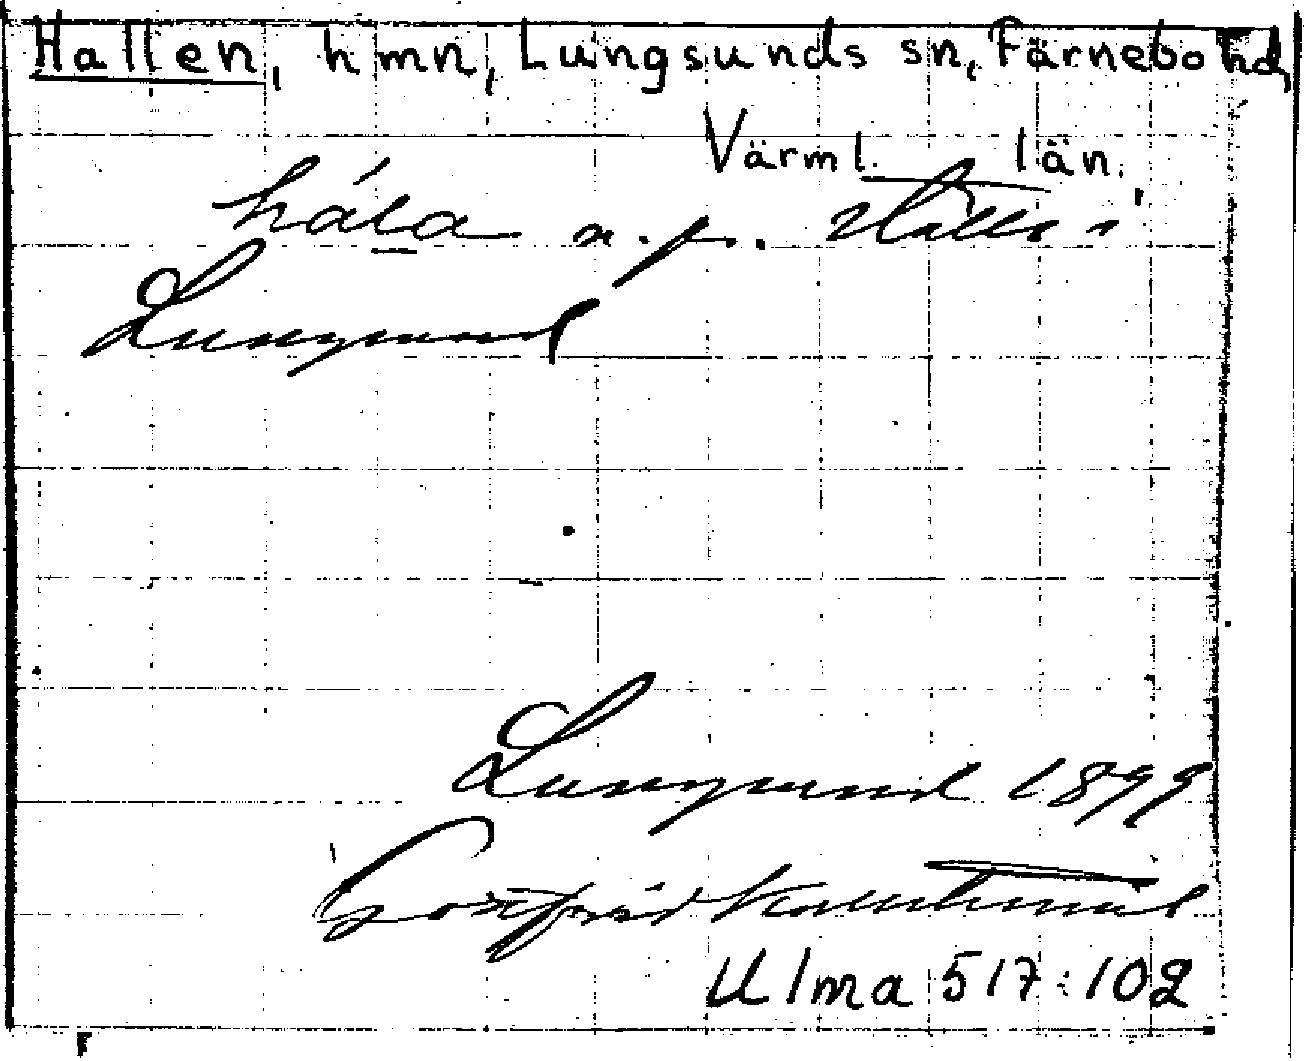 Hallen, hmn, Lungsunds sn, Färnebo hd,
Värml. län.
hála n. p. ställe i
Lungsund
Lungsund 1899
Gottfrid Kallstenius
Ulma 517:102